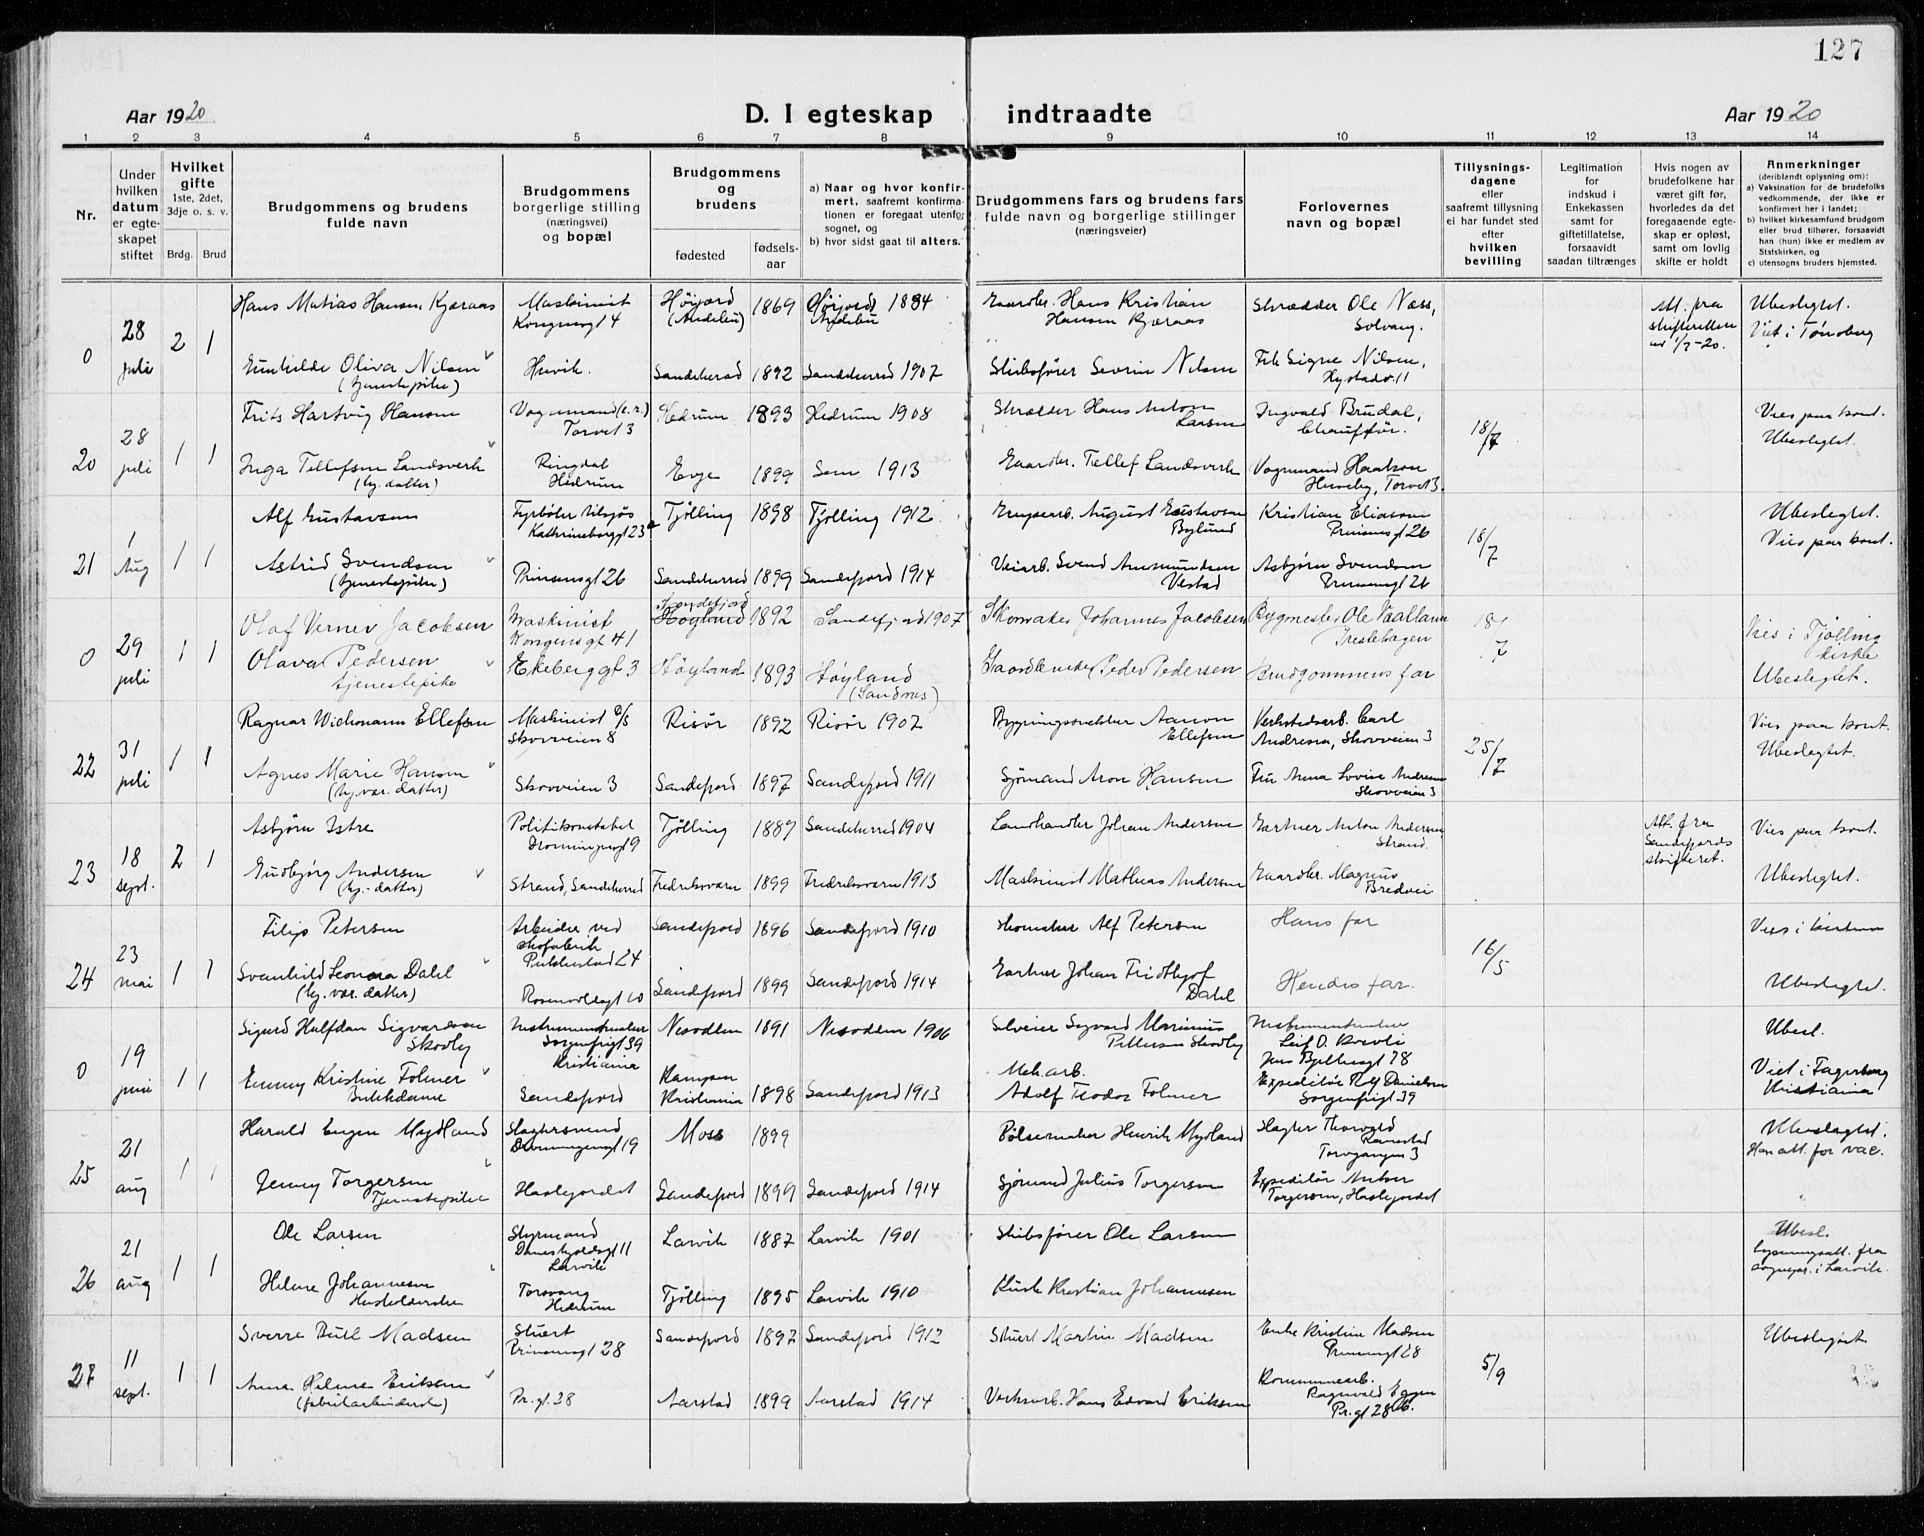 127
Aar 1920
D. I egteskap indtraadte
Aar 1920
1 2 3 4 5 6 7 8 9 10 11 12 13 14
Nr.
Under hvilken datum er egte-skapet stiftet
Hvilket gifte 1ste, 2det, 3dje o. s. v.
Brdg. Brud
Brudgommens og brudens fulde navn
Brudgommens borgerlige stilling (næringsvei) og bopæl
Brudgommens og brudens
fødested
fødsels-aar
a) Naar og hvor konfir-mert, saafremt konfirma-tionen er foregaat utenfor sognet, og
b) hvor sidst gaat til alters.
Brudgommens fars og brudens fars fulde navn og borgerlige stillinger (næringsveier)
Forlovernes navn og bopæl
Tillysnings-dagene eller saafremt tillysning ei har fundet sted efter hvilken bevilling
Legitimation for indskud i Enkekassen samt for giftetillatelse, forsaavidt saadan tiltrænges
Hvis nogen av brudefolkene har været gift før, hvorledes da det foregaaende egte-skap er opløst, samt om lovlig skifte er holdt
Anmerkninger (deriblandt oplysning om):
a) Vaksination for de brudefolks vedkommende, der ikke er konfirmert her i landet;
b) hvilket kirkesamfund brudgom eller brud tilhører, forsaavidt han (hun) ikke er medlem av Statskirken, og
c) utensogns bruders hjemsted.
0 28 juli 2 1
Hans Matias Hansen Kjæraas Maskinist Kongensgt 4 Høijord (Andebu) 1869 Høijord Andebu 1884 Gaardbr. Hans Kristian Hansen Kjæraas Skrædder Ole Næss, Solvang. Att. fra skifteretten av 1/7-20. Ubeslegtet. Viet i Tønsberg
Gunhilde Oliva Nilsen (tjenestepike) Huvik. Sandeherred 1892 Sandeherred 1907 Skibsfører Severin Nilsen Frk Signe Nilsen, Hystadv. 11
20 28 juli 1 1
Frits Hartvig Hansen Vognmand (e.r.) Torvet 3 Hedrum 1893 Hedrum 1908 Skrædder Hans Anton Larsen Ingvald Brudal, Chauffør. 18/7 Vies paa kont. Ubeslegtet.
Inga Tellefsen Landsverk (hj. datter) Ringdal Hedrum Evje 1899 Sem 1913 Gaardbr. Tellef Landsverk Vognmand Haakon Huseby, Torvet 3.
21 1 Aug 1 1
Alf Gustavsen Fyrbøter tilsjøs Kathrineborggt 23a Tjølling 1898 Tjølling 1912 Grupearb. August Gustavsen Bylund Kristian Eliassen Prinsensgt 26 18/7 Ubeslegtet. Vies paa kont.
Astrid Svendsen (tjenestepike) Prinsensgt 26 Sandeherred 1899 Sandefjord 1914 Veiarb. Svend Amundsen Vestad Asbjørn Svendsen Prinsensgt 26
0 29 juli 1 1
Olaf Verner Jacobsen Maskinist Kongensgt 41 Sandefjord 1892 Sandefjord 1907 Skomaker Johannes Jacobsen Bygmester Ole Vaalland 18/7 Vies i Tjølling kirke
Olava Pedersen tjenestepike Ekeberggt 3 Høyland 1893 Høyland (Sandnes) Gaardbruker Peder Pedersen Brudgommens far Ubeslegtet.
22 31 juli 1 1
Ragnar Wichmann Ellefsen Maskinist Skovveien 8 Risør 1892 Risør 1907 Bygningssnekker Aanon Ellefsen Verkstedsarb. Carl Andresen, Skovveien 3 25/7 Vies paa kont. Ubeslegtet.
Agnes Marie Hansen (hj. vær. datter) Skovveien 3 Sandefjord 1897 Sandefjord 1911 Sjømand Aron Hansen Fru Anna Lovise Andresen Skovveien 3
23 18 sept. 2 1
Asbjørn Istre Politikonstabel Dronningensgt 9 Tjølling 1887 Sandeherred 1904 Landhandler Johan Andersen Gartner Anton Andersen Strand. Att. fra Sandefjords skifteret. Vies paa kont.
Gudbjørg Andersen (hj. datter) Strand, Sandeherred Fredriksværn 1899 Fredriksværn 1913 Maskinist Mathias Andersen Gaardbr. Magnus Bredvei Ubeslegtet.
24 23 mai 1 1
Filip Petersen Arbeider ved skofabrik Pukkestad 24 Sandefjord 1896 Sandefjord 1910 Skomaker Alf Petersen Hans far 16/5 Vies i kirken
Svanhild Leonora Dahl (hj. vær. datter) Rosenvoldsgt 10 Sandefjord 1899 Sandefjord 1914 Gartner Johan Fridthjof Dahl Hendes far. Ubeslegtet.
0 19 juni 1 1
Sigurd Halfdan Sigvardsen Skovly Instrumentmaker Sorgenfrigt 39 Kristiania Nesodden 1891 Nesodden 1906 Sigvard Marinius Pettersen Skovly Instrumentmaker Leif O. Jens Bjelkesgt 78 Ubesl.
Emmy Kristine Folmer Butikdame Sandefjord Kampen Kristiania 1898 Sandefjord 1913 Mek. arb. Adolf Teodor Folmer Expeditør Rolf Danielsen Sorgenfrigt 39 Viet i Fagerborg Kristiania
25 21 aug 1 1
Harald Eugen Mydland Slagtersvend Dronningensgt 19 Moss 1899 Pølsemaker Henrik Mydland Slagter Thorvald Ramstad Torvgangen 3 Ubeslegtet. Han att. for vac.
Jenny Torgersen Tjenestepike Haslejordet Sandefjord 1899 Sandefjord 1914 Sjømand Julius Torgersen Expeditør Anton Torgersen, Haslejordet
26 21 aug 1 1
Ole Larsen Styrmand Daneskjoldsgt 11 Larvik Larvik 1887 Larvik 1901 Skibsfører Ole Larsen Ubesl. Lysningsatt. fra sognepr. i Larvik.
Helene Johannesen Husholderske Torsvang Hedrum Tjølling 1895 Larvik 1910 Kusk Kristian Johannesen
27 11 sept. 1 1
Sverre Bull Madsen Stuert Prinsensgt 28 Sandefjord 1897 Sandefjord 1912 Stuert Martin Madsen Enke Kristine Madsen Prinsensgt 28 5/9 Ubeslegtet
Anna Helene Eriksen (fabrikarbeiderske) Pr. gt. 28 Aarstad 1899 Aarstad 1914 Verksarb. Hans Edvard Eriksen Kommunearb. Ragnvald Pr. gt 28 b.